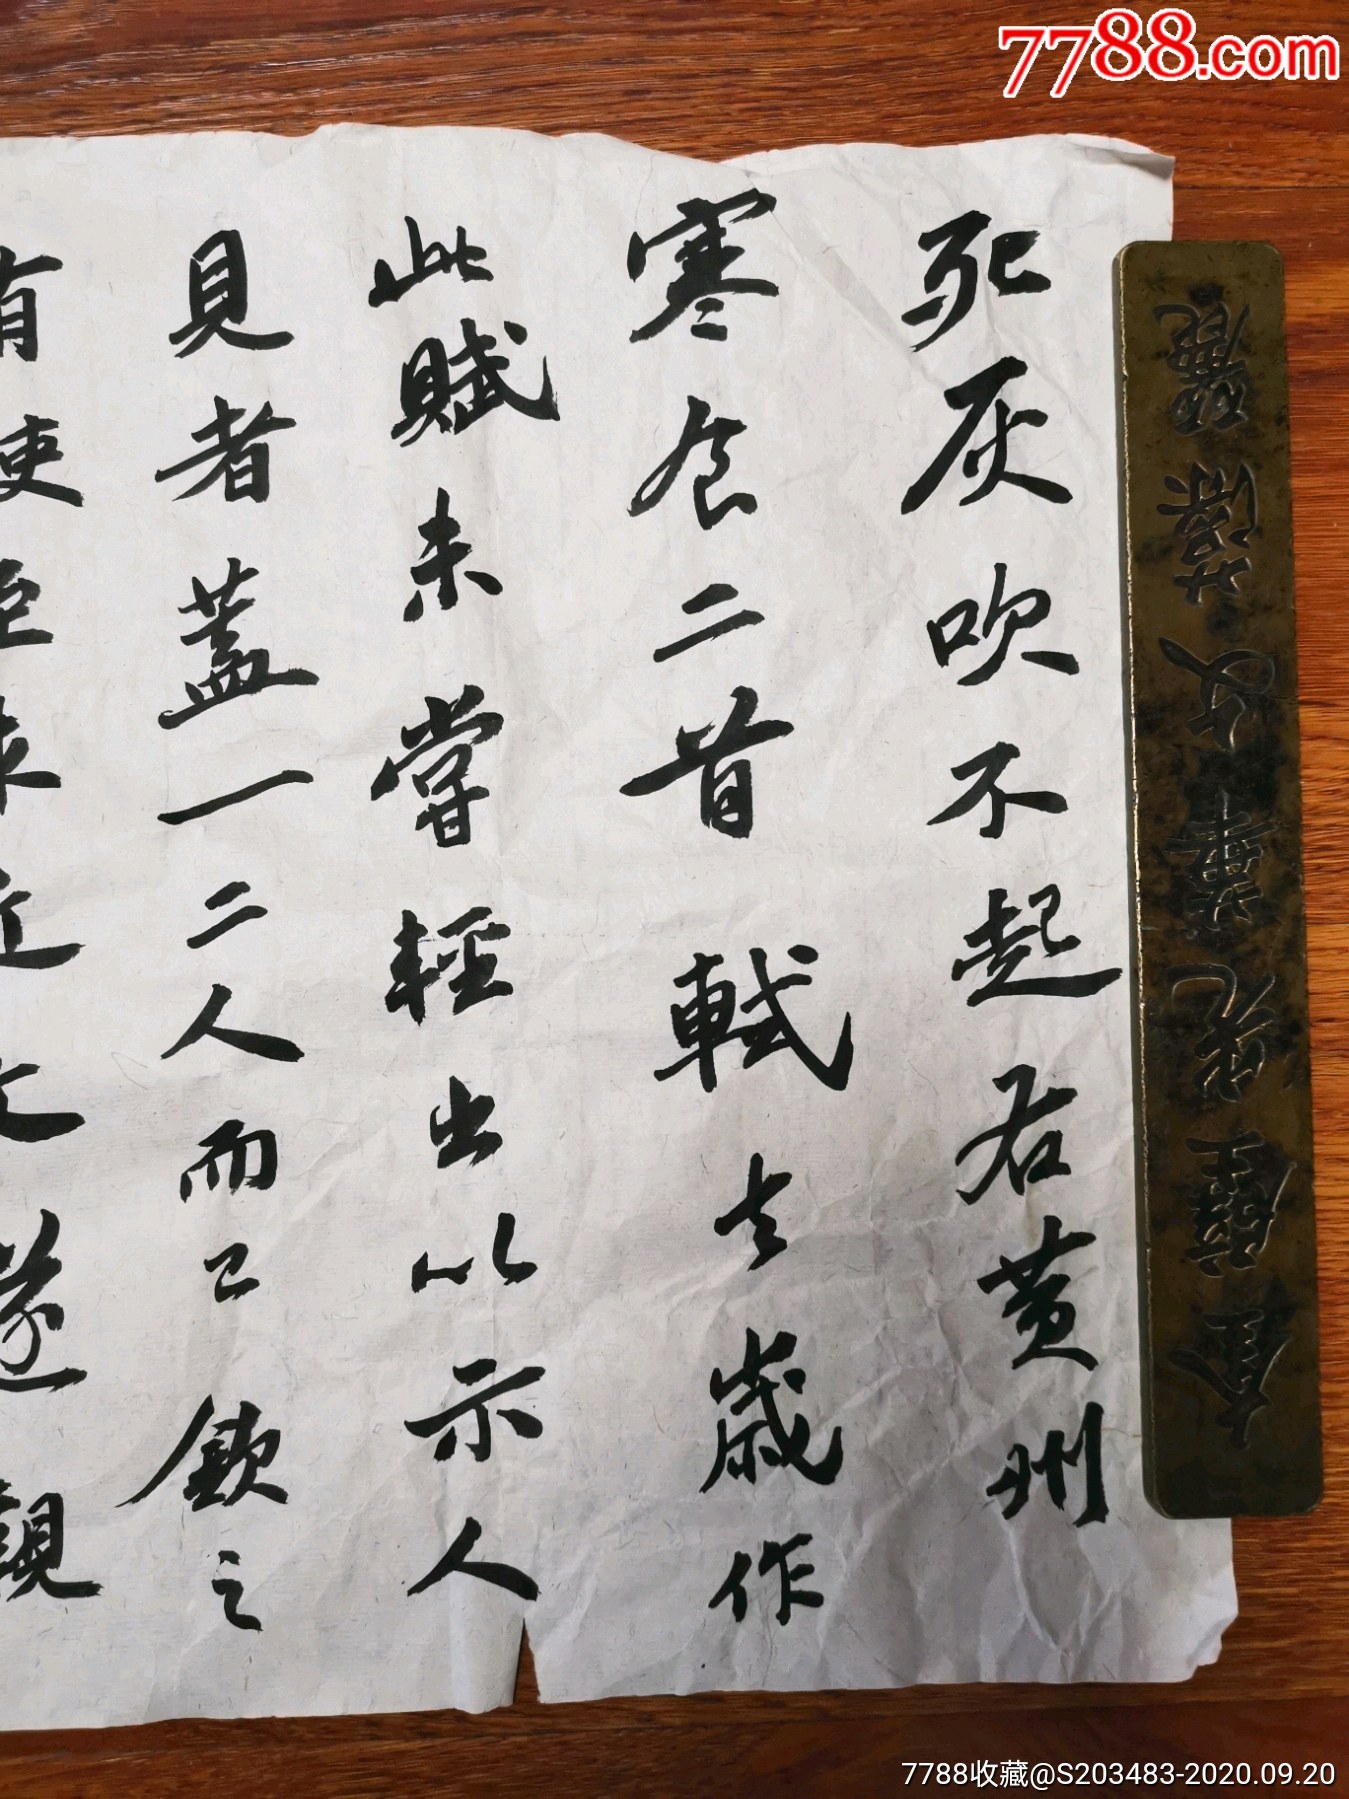 7788.com
死灰吹不起右黄州
寒食二首軾去歲作
此賦未嘗輕出以示人
見者蓋一二人而已欽之
有使求近文遂親
7788收藏@S203483-2020.09.20